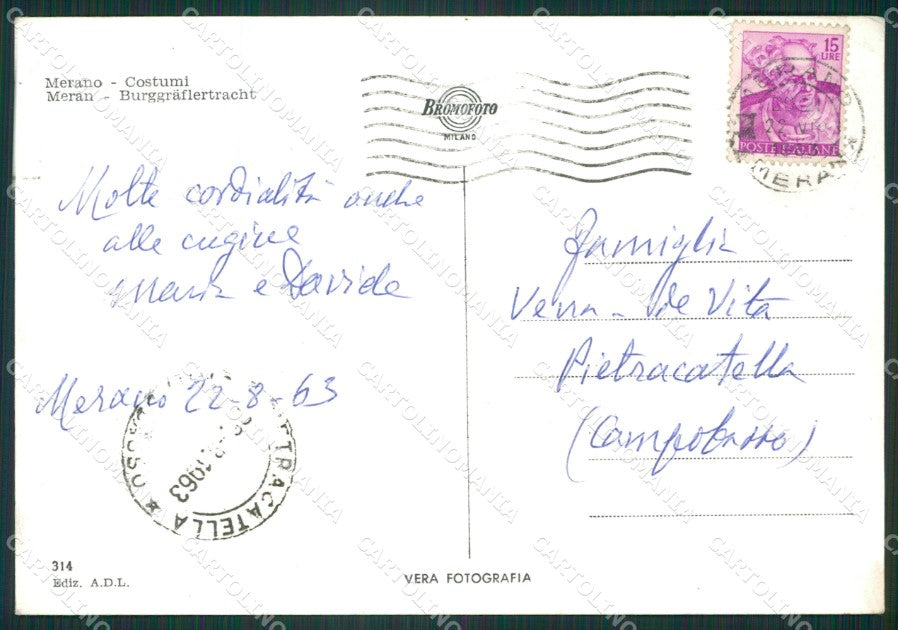 Merano - Costumi
Meran - Burggräflertracht
BROMOFOTO
MILANO
15
LIRE
POSTE ITALIANE
MERANO
Molte cordialità anche
alle cugine
Maria e Davide
Merano 22-8-63
PIETRACATELLA
1963
Famiglia
Venna - de Vita
Pietracatella
(Campobasso)
314
Ediz. A.D.L.
VERA FOTOGRAFIA
CARTOLINOMANIA